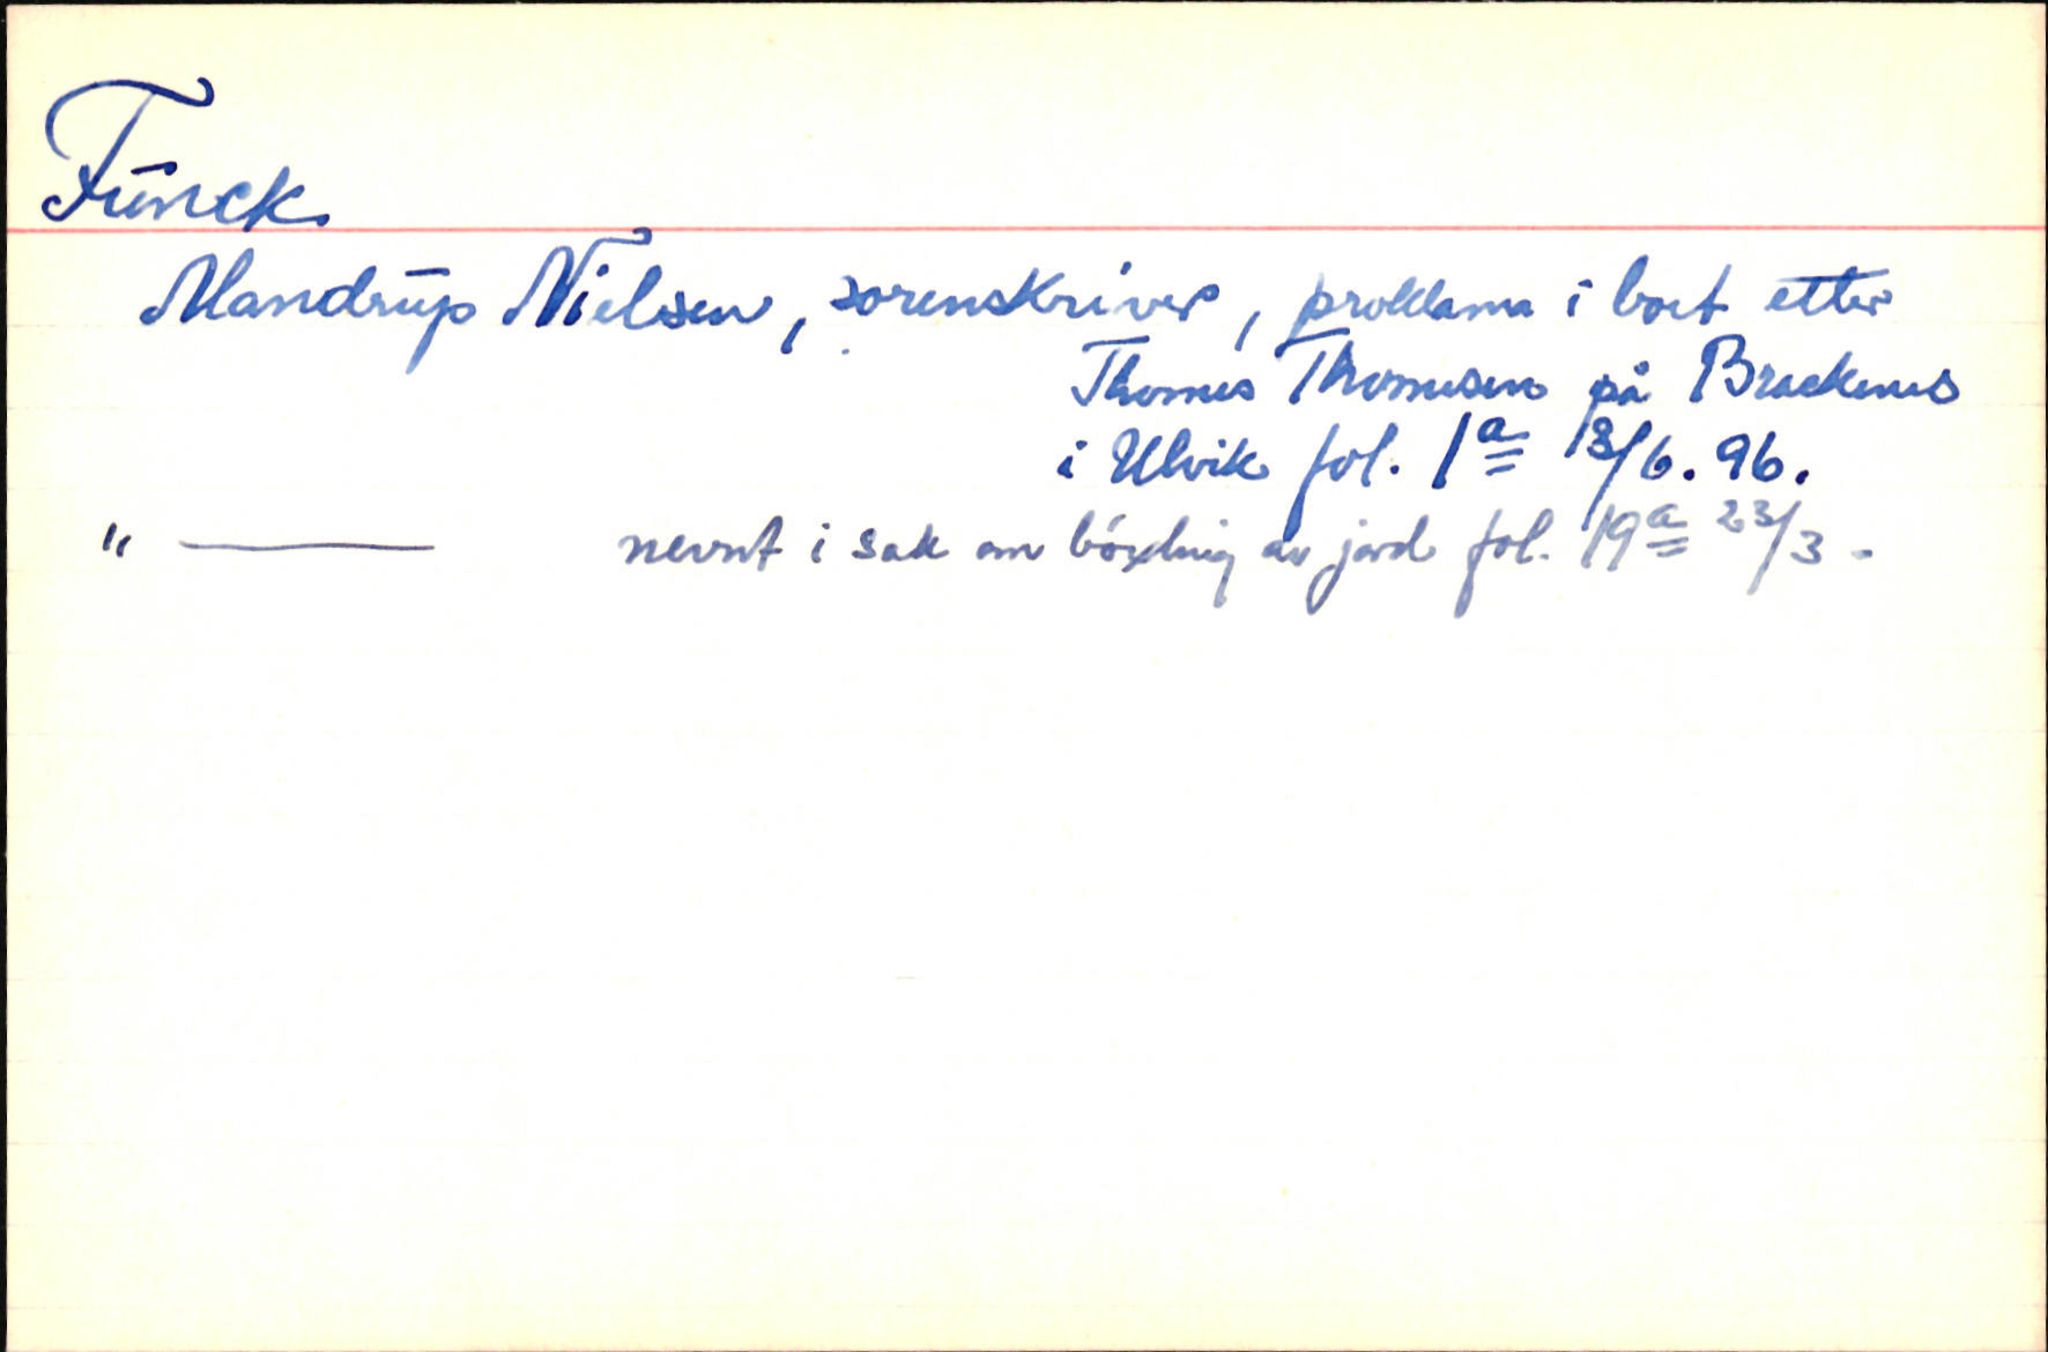 Funck
Mandrup Nielsen, sorenskriver, proklama i boet etter
Thomes Thomesen på Brackenes
i Ulvik fol. 1a 13/6. 96.
" — nevnt i sak om böxling av jord fol. 19a 23/3 -